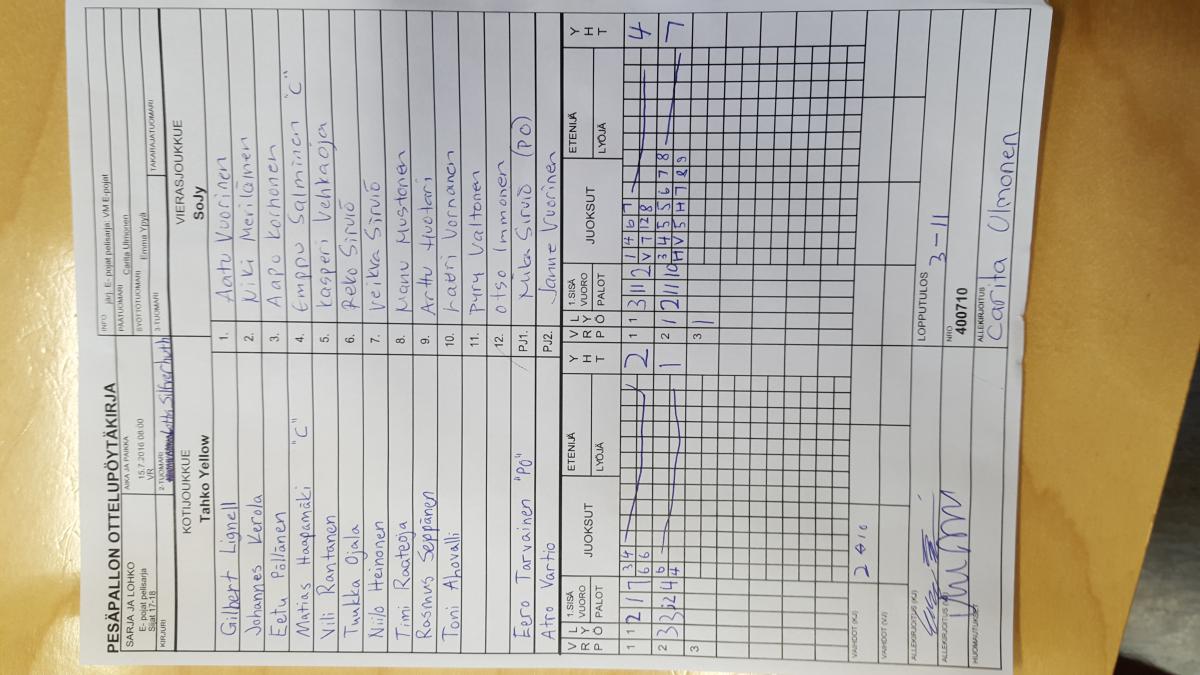 PESÄPALLON OTTELUPÖYTÄKIRJA
SARJA JA LOHKO
E- pojat pelisarja
Sijat 17-18
AIKA JA PAIKKA
15.7.2016 08:00
VR
INFO järj. E- pojat pelisarja: VM E-pojat
PÄÄTUOMARI Carita Ulmonen
SYÖTTÖTUOMARI Emma Ypyä
KIRJURI
2-TUOMARI
3-TUOMARI
TAKARAJATUOMARI
KOTIJOUKKUE
Tahko Yellow
VIERASJOUKKUE
SoJy
Gilbert Lignell 1. Aatu Vuorinen
Johannes Kerola 2. Niki Meriläinen
Eetu Pöllänen 3. Aapo Korhonen
Matias Haapamäki "C" 4. Emppu Salminen "C"
Vili Rantanen 5. Kasperi Vehkaoja
Tuukka Ojala 6. Reko Sirviö
Niilo Heinonen 7. Veikka Sirviö
Timi Raateoja 8. Manu Mustonen
Rasmus Seppänen 9. Arttu Huotari
Toni Ahovalli 10. Lauri Vornanen
11. Pyry Valtonen
12. Otso Immonen
Eero Tarvainen "PO" PJ1. Mika Sirviö (PO)
Atro Vartio PJ2. Janne Vuorinen
V L 1.SISÄ JUOKSUT ETENIJÄ Y V L 1.SISÄ JUOKSUT ETENIJÄ Y
R Y VUORO H R Y VUORO H
P Ö PALOT LYÖJÄ T P Ö PALOT LYÖJÄ T
1 1 2 1 7 3 4 2 1 1 3 11 2 1 4 6 7 4
6 6 V 7 12 8
2 3 4 6 1 2 1 2 11 10 3 4 5 5 6 7 8 7
4 H V 5 H 7 8 9
3 3 1
VAIHDOT (KJ)
VAIHDOT (VJ)
ALLEKIRJOITUS (KJ)
LOPPUTULOS 3-11
ALLEKIRJOITUS (VJ)
NRO
400710
HUOMAUTUKSET
ALLEKIRJOITUS
Carita Ulmonen